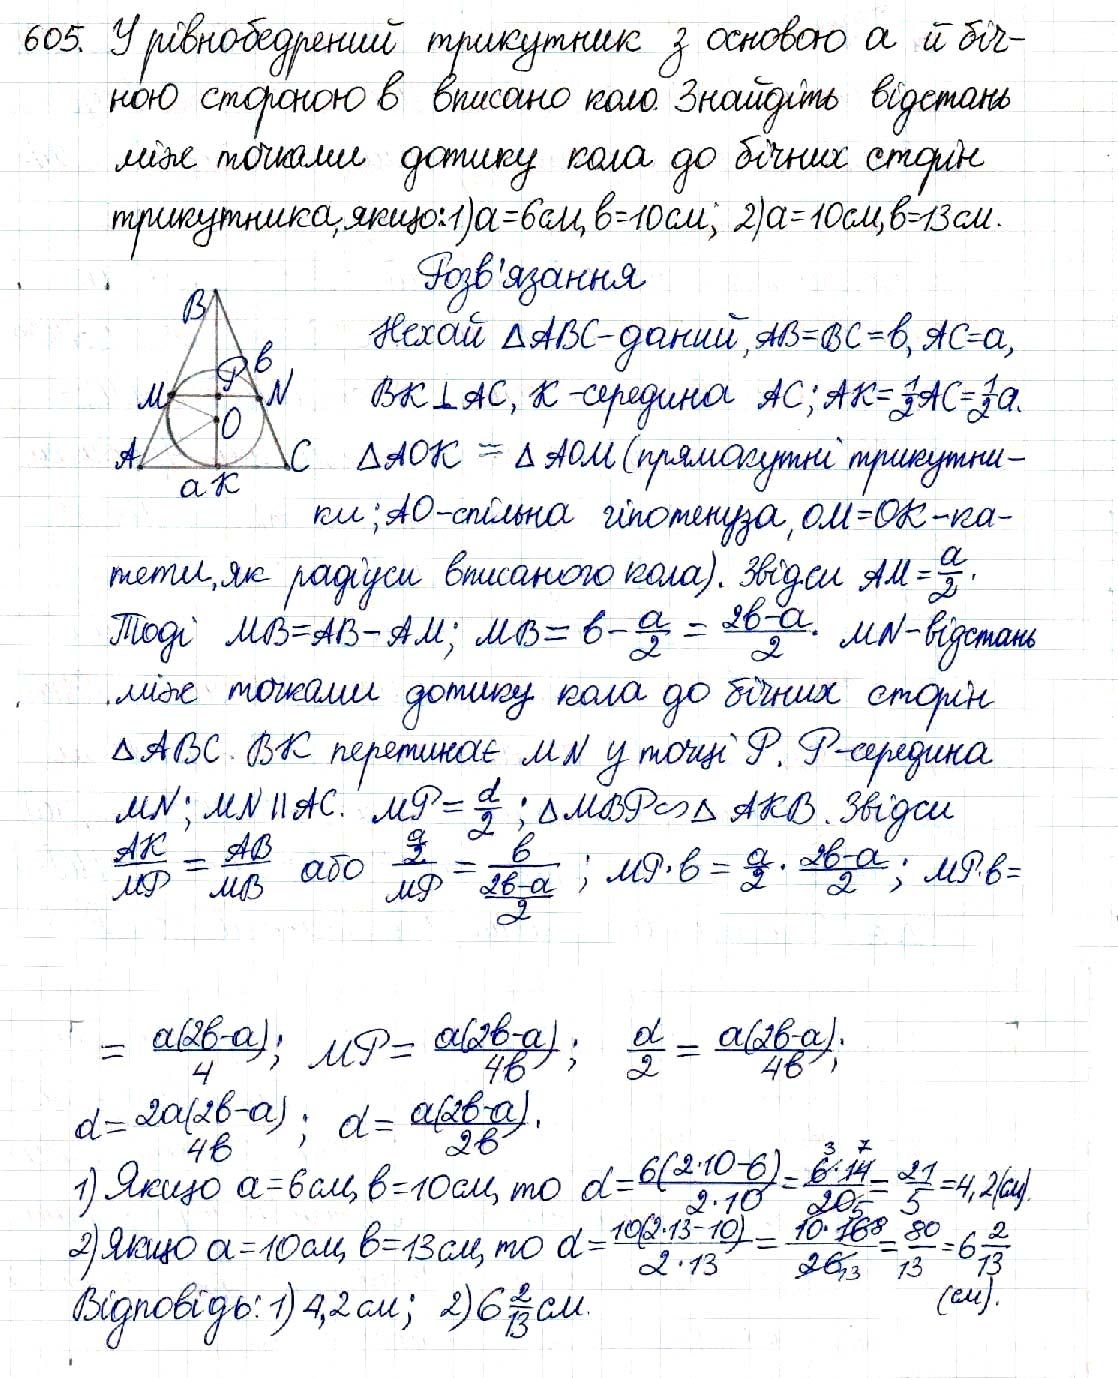 605. У рівнобедрений трикутник з основою a й біч-
ною стороною b вписано коло. Знайдіть відстань
між точками дотику кола до бічних сторін
трикутника, якщо: 1) a=6см, b=10см; 2) a=10см, b=13см.
Розв'язання
B
Нехай △ABC-даний, AB=BC=b, AC=a,
P b
M N
BK⊥AC, K-середина AC; AK=1/2AC=1/2a.
O
A C
△AOK = △AOM (прямокутні трикутни-
a K
ки; AO-спільна гіпотенуза, OM=OK-ка-
тети, як радіуси вписаного кола). Звідси AM=a/2.
Тоді MB=AB-AM; MB=b-a/2=(2b-a)/2. MN-відстань
між точками дотику кола до бічних сторін
△ABC. BK перетинає MN у точці P. P-середина
MN; MN||AC. MP=d/2; △MBP∽△AKB. Звідси
AK/MP=AB/MB або (a/2)/MP=b/((2b-a)/2); MP·b=a/2·(2b-a)/2; MP·b=
=a(2b-a)/4; MP=a(2b-a)/4b; d/2=a(2b-a)/4b;
d=2a(2b-a)/4b; d=a(2b-a)/2b.
1) Якщо a=6см, b=10см, то d=6(2·10-6)/2·10=6·14/20=21/5=4,2(см).
2) Якщо a=10см, b=13см, то d=10(2·13-10)/2·13=10·16/26=80/13=6 2/13
(см).
Відповідь: 1) 4,2см; 2) 6 2/13 см.